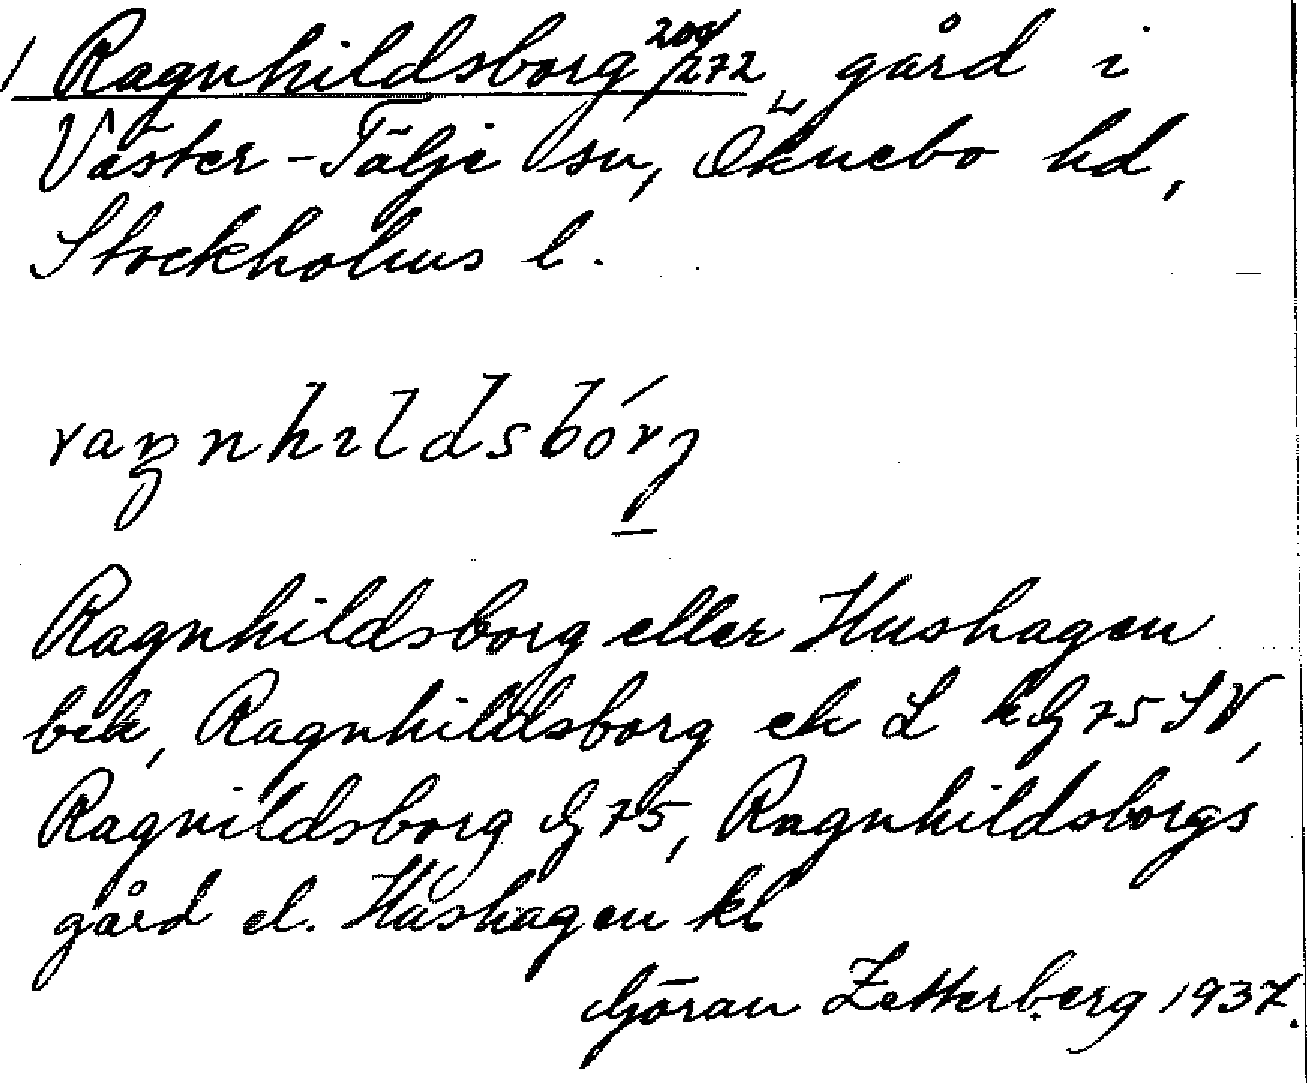 1 Ragnhildsborg 200/272 gård i
Väster-Tälje sn, Öknebo hd,
Stockholms l.
ragnhildsbórg
Ragnhildsborg eller Hushagen
bek, Ragnhildsborg ek L k G 75 SV,
Ragnildsborg G 75, Ragnhildsborgs
gård el. Hushagen kb
Göran Zetterberg 1937.